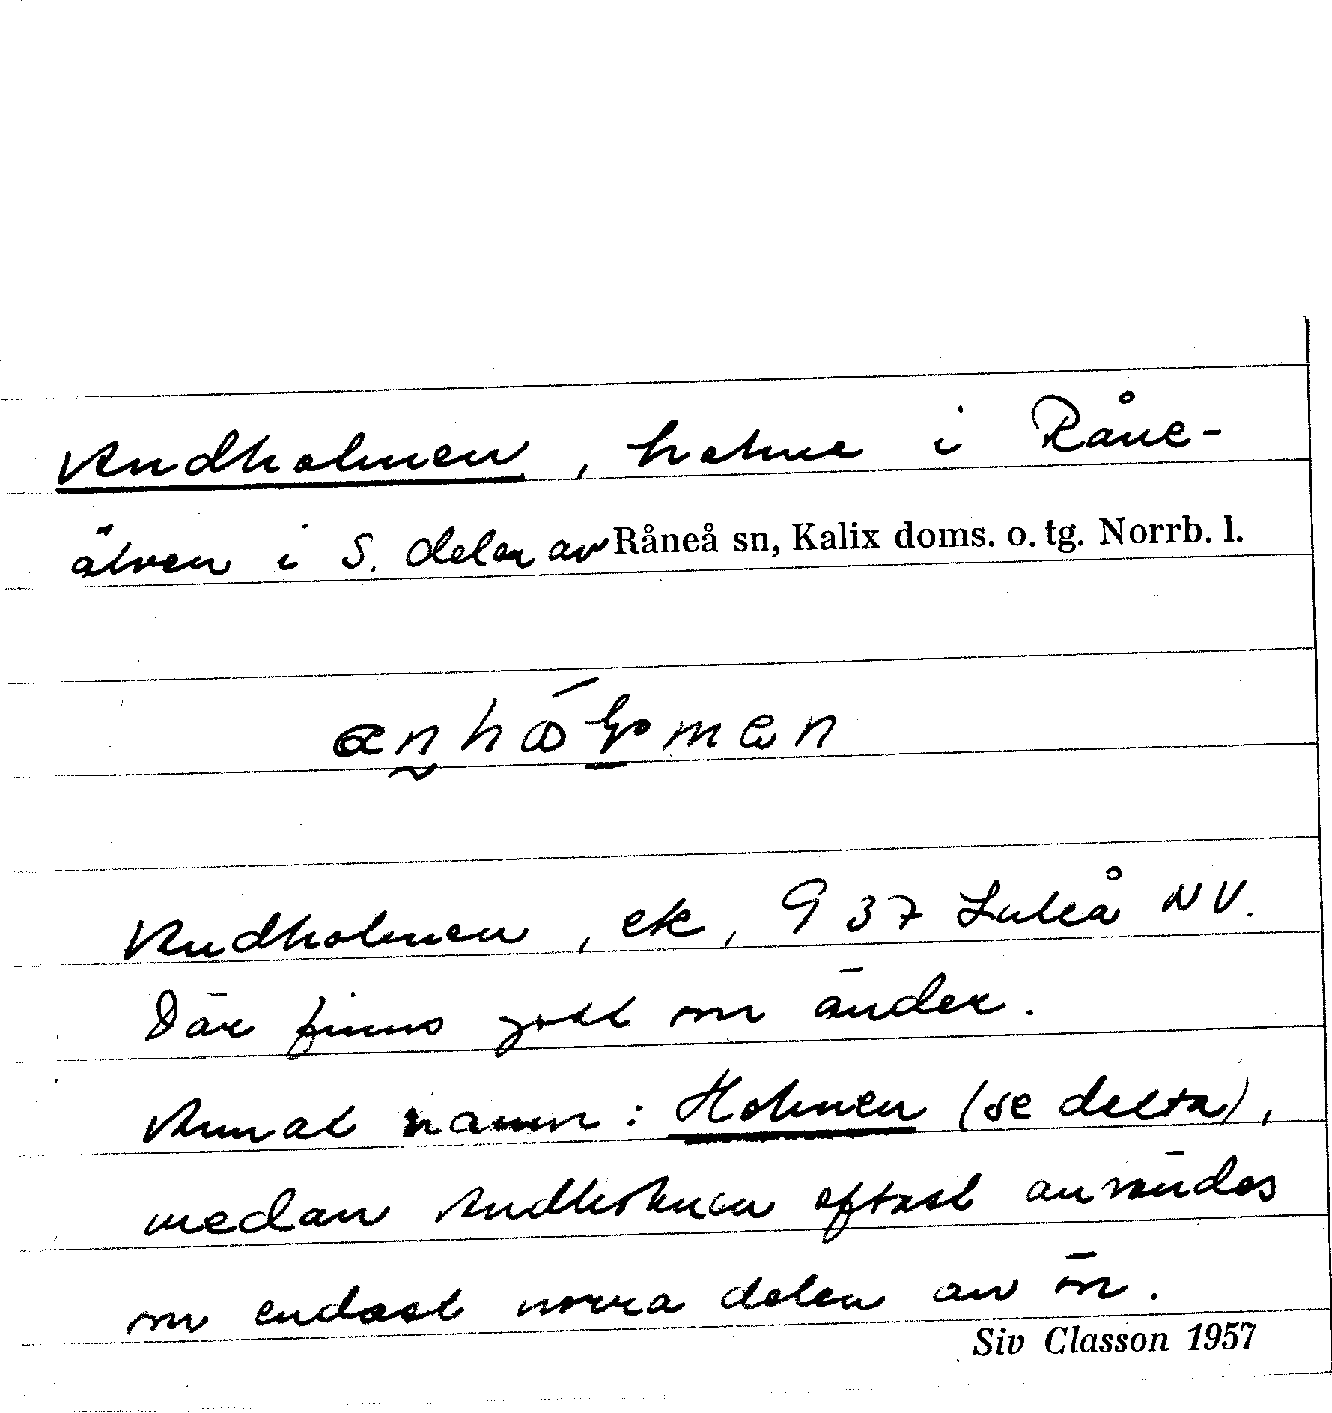 Andholmen, holme i Råne-
älven i S. delen av Råneå sn, Kalix doms. o. tg. Norrb. l.
Andholmen, ek, 9 37 Luleå NV.
Där finns gott om änder.
Annat namn: Holmen (se detta),
medan Andholmen oftast användes
om endast norra delen av ön.
Siv Classon 1957